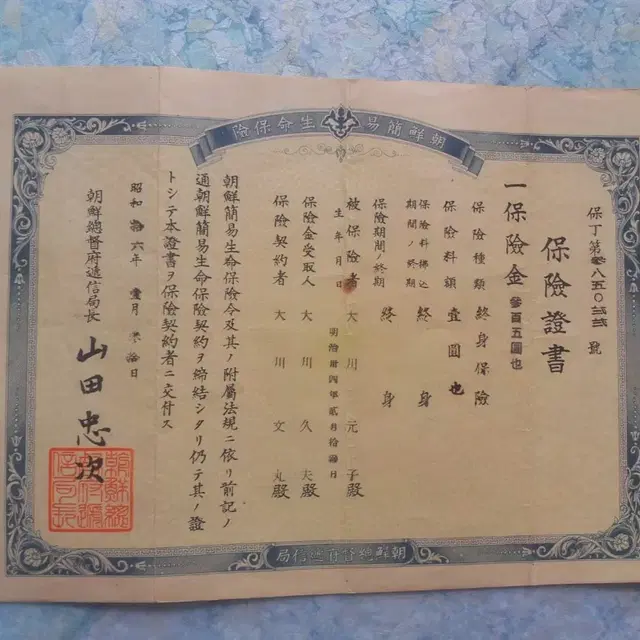 朝鮮簡易生命保險
保丁第 八五〇 號
保險證書
一保險金 參百五圓也
保險種類 終身保險
保險料額 壹圓也
保險料拂込
期間ノ終期 終身
保險期間ノ終期 終身
被保險者 大川元子殿
生年月日 明治卅四年貳月拾 日
保險金受取人 大川久夫殿
保險契約者 大川文丸殿
朝鮮簡易生命保險令及其ノ附屬法規ニ依リ前記ノ
通朝鮮簡易生命保險契約ヲ締結シタリ仍テ其ノ證
トシテ本證書ヲ保險契約者ニ交付ス
昭和拾六年 壹月 拾日
朝鮮總督府遞信局長 山田忠次
朝鮮總督府遞信局